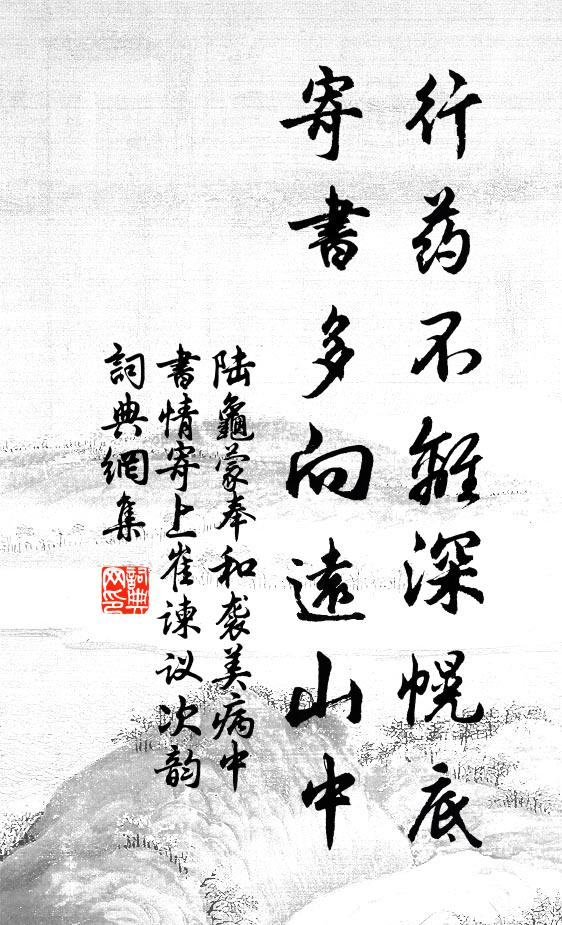 行药不離深幌底
寄書多向遠山中
陆龜蒙奉和袭美病中
書情寄上崔谏议次韵
詞典網集
詞典网印